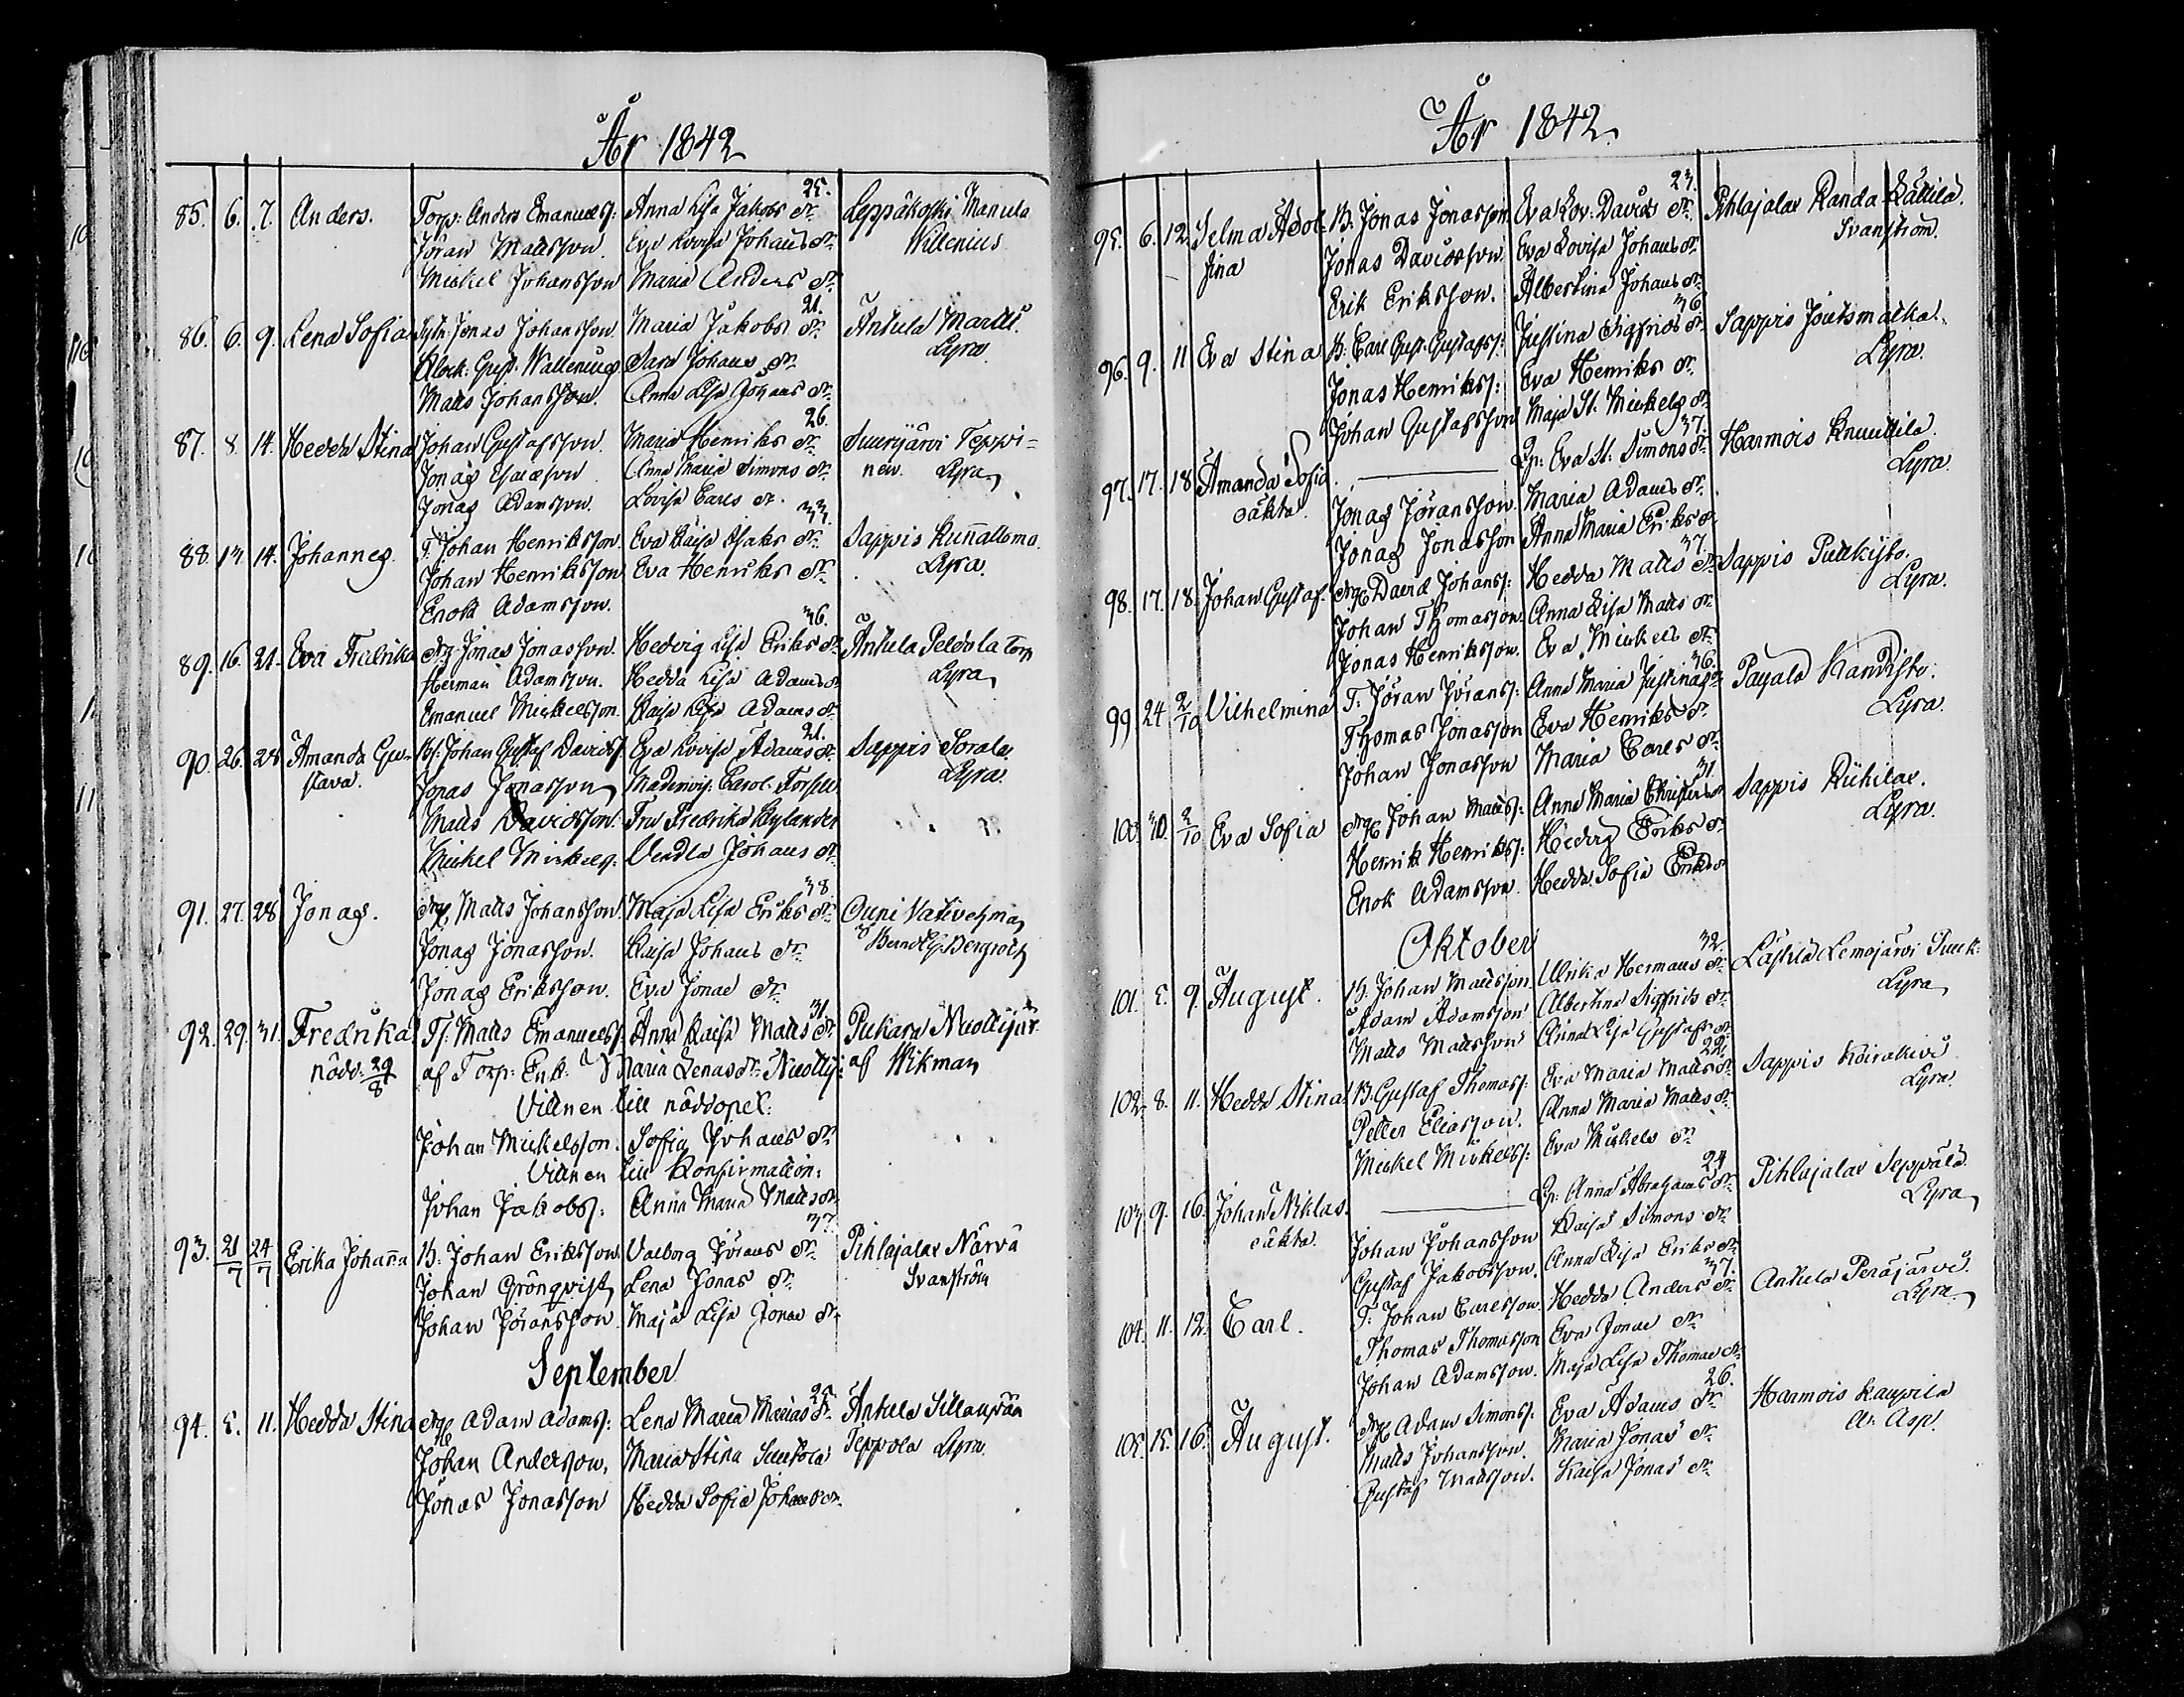 År 1842
85. 6. 7. Anders. Torp: Anders Emanuelss: Anna Lisa Jakobs dr. 25. Leppäkoski Manula
Jöran Mattsson. Eva Lovisa Johans dr. Willenius
Mickel Johansson Maria Anders dr.
86. 6. 9. Lena Sofia Sytn: Jonas Johansson. Maria Jakobs dr. 21. Ankula Martti.
Klock: Gust. Wallenius Sara Johans dr. Lyra.
Matts Johansson. Anna Lisa Johans dr.
87. 8. 14. Hedda Stina Johan Gustafsson. Maria Henriks dr. 26. Suurijärvi Teppi=
Jonas Esaiasson Anna Maria Simons dr. nen. Lyra
Jonas Adamsson. Lovisa Carls dr.
88. 13. 14. Johannes. T. Johan Henriksson. Eva Kaisa Isaks dr. 33. Sappis Kunnalloma.
Johan Henriksson Eva Henriks dr. Lyra.
Enok Adamsson.
89. 16. 21. Eva Fredrika drg Jonas Jonasson. Hedvig Lisa Eriks dr. 36. Ankula Peldola torp
Herman Adamsson. Hedda Lisa Adams dr Lyra
Emanuel Mickelsson. Kaisa Lisa Adams dr.
90. 26. 28 Amanda Gu- Bs: Johan Gustaf Davidss. Eva Lovisa Adams dr. 21. Sappis Sorala.
stava. Jonas Jonasson Mademois: Carol. Forssell Lyra.
Matts Davidsson. Fru Fredrika Kylander
Mickel Mickelss: Vendla Johans dr.
91. 27. 28 Jonas. drg Matts Johansson. Maja Lisa Eriks dr. 38 Ouni Vativehma
Jonas Jonasson. Kaisa Johans dr. Berndt G: Bergroth
Jonas Eriksson. Eva Jonae dr.
92. 29. 31. Fredrika Tj. Matts Emanuelss: Anna Kaisa Matts dr 31. Pukara Nuollijär.
nödd: 29/8 af Torp: Enk. Maria Lenas dr. Nuollij: af Wikman
Vittnen till nöddopet:
Johan Mickelsson. Sofia Johans dr.
Vittnen till Konfirmation:
Johan Jakobs: Anna Maria Matts dr.
93. 21/7 24/7 Erika Johanna B: Johan Eriksson. Valborg Jörans dr. 37. Pihlajalax Närvä
Johan Grönqvist, Lena Jonas dr. Svanström
Johan Jöransson Maja Lisa Jonae dr.
September
94. 5. 11. Hedda Stina drg Adam Adams: Lena Maria Marias dr. 25. Ankula Sillanpää
Johan Andersson. Maria Stina Teppola Lyra.
Jonas Jonasson Hedda Sofia Johans dr.
År 1842.
95. 6. 12. Selma Adol- B. Jonas Jonasson Eva Lov. Davids dr. 23. Pihlajalax Randa Kättilä.
fina Jonas Davidsson Eva Lovisa Johans dr. Svanström.
Erik Eriksson. Albertina Johans dr.
96. 9. 11 Eva Stina B. Carl Gust. Gustafss: Justina Sigfrids dr. 36. Sappis Joutsmatka.
Jonas Henrikss: Eva Henriks dr. Lyra.
Johan Gustafsson Maja St. Mickels dr.
97. 17. 18 Amanda Sofia Qp: Eva St. Simons dr. 37. Harmois Knuuttila.
oäkta. Jonas Jöransson. Maria Adams dr. Lyra.
Jonas Jonasson Anna Maria Eriks dr
98. 17. 18. Johan Gustaf. drg David Johanss: Hedda Matts dr. 37. Sappis Putkisto.
Johan Thomasson. Anna Lisa Matts dr. Lyra.
Jonas Henriksson. Eva Mickels dr.
99. 24 2/10 Vilhelmina T. Jöran Jöranss: Anna Maria Justinas dr 36. Payala Kandisto.
Thomas Jonasson Eva Henriks dr Lyra.
Johan Jonasson Maria Carls dr.
100. 30. 2/10 Eva Sofia drg Johan Matts: Anna Maria Christers dr 31. Sappis Riihilax.
Henrik Henrikss: Hedvig Eriks dr. Lyra.
Enok Adamsson. Hedda Sofia Eriks dr
Oktober
101. 5. 9. August. B. Johan Mattsson Ulrika Hermans dr. 32. Lästilä Lemojärvi Puuk:
Adam Adamsson Albertina Sigfrids dr. Lyra
Matts Mattsson Anna Lisa Gustafs dr.
102. 8. 11. Hedda Stina B. Gustaf Thomass: Eva Maria Matts dr. 22. Sappis Koirakivi
Petter Eliasson. Anna Maria Matts dr. Lyra.
Mickel Mickelss: Eva Mickels dr.
103. 9. 16. Johan Niklas. Qp: Anna Abrahams dr. 24 Pihlajalax Seppälä
oäkta. Johan Johansson Kaisa Simons dr. Lyra
Gustaf Jakobsson. Anna Lisa Eriks dr
104. 11. 12. Carl. T: Johan Carlsson Hedda Anders dr. 37. Ankula Peräjärvi.
Thomas Thomasson Eva Jonae dr Lyra
Johan Adamsson. Maja Lisa Thomae dr.
105. 15. 16. August. drg Adam Simonss: Eva Adams dr. 26. Harmois Kaupila
Matts Johansson. Maria Jonas dr. A: Asp.
Gustaf Mattsson. Kaisa Jonas dr.